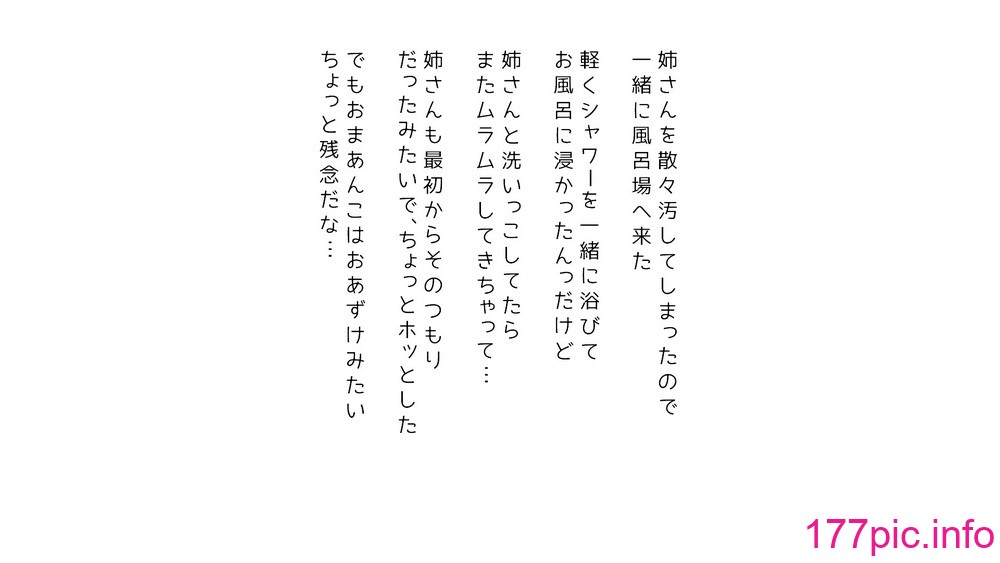 姉さんを散々汚してしまったので
一緒に風呂場へ来た
軽くシャワーを一緒に浴びて
お風呂に浸かったんっだけど
姉さんと洗いっこしてたら
またムラムラしてきちゃって…
姉さんも最初からそのつもり
だったみたいで、ちょっとホッとした
でもおまあんこはおあずけみたい
ちょっと残念だな…
177pic.info